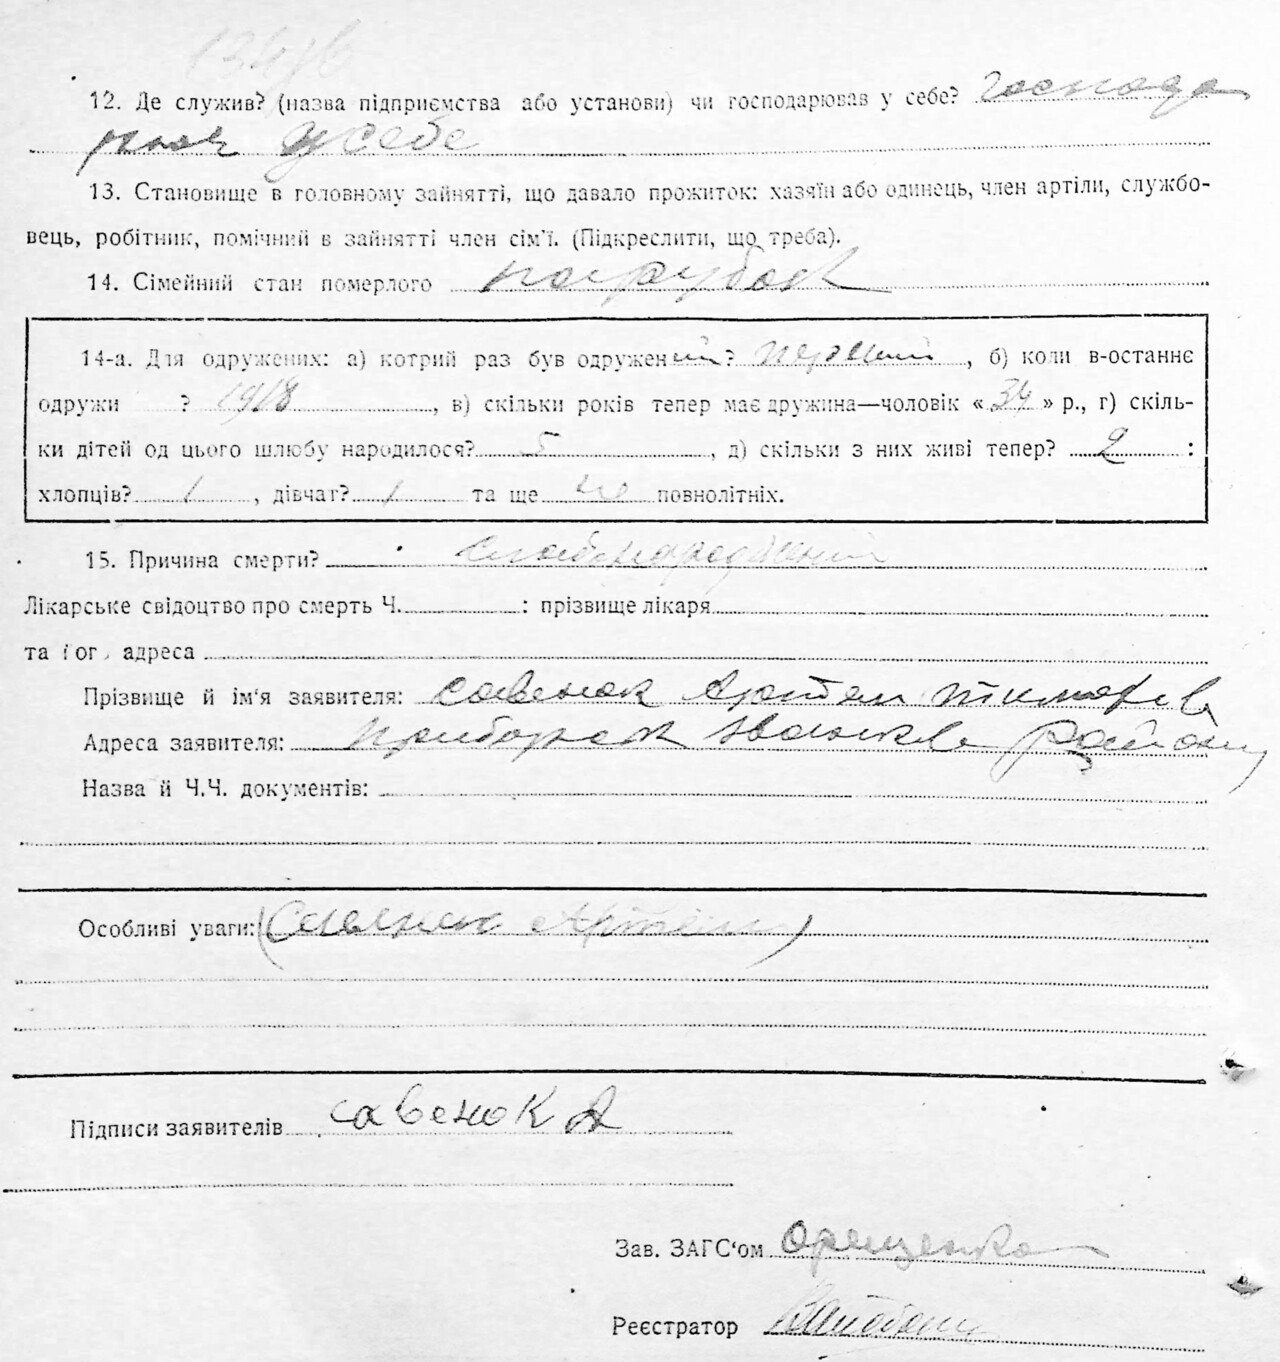 12. Де служив? (назва підприємства або установи) чи господарював у себе? господа
рює у себе
13. Становище в головному зайнятті, що давало прожиток: хазяїн або одинець, член артіли, службо-
вець, робітник, помічний в зайнятті член сім'ї. (Підкреслити, що треба).
14. Сімейний стан померлого парубок
14-а. Для одружених: а) котрий раз був одружений? перший, б) коли в-останнє
одружи ? 1918, в) скільки років тепер має дружина—чоловік «34» р., г) скіль-
ки дітей од цього шлюбу народилося? 5, д) скільки з них живі тепер? 2:
хлопців? 1, дівчат? 1 та ще не повнолітніх.
15. Причина смерти?
Лікарське свідоцтво про смерть Ч. : прізвище лікаря
та ог адреса
Прізвище й ім'я заявителя: Савенок Артем Тимофев
Адреса заявителя: району
Назва й Ч.Ч. документів:
Особливі уваги: (Савенок Артем)
Підписи заявителів Савенок А
Зав. ЗАГС'ом Орещенко
Реєстратор